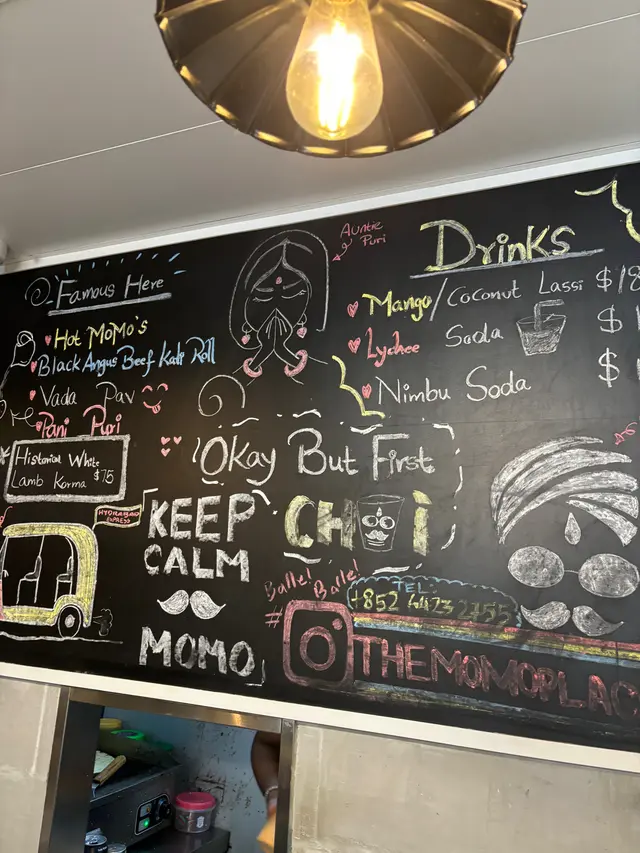 Famous Here
Hot MoMo's
Black Angus Beef Kati Roll
Vada Pav
Pani Puri
Historical White
Lamb Korma $75
HYDRABAD
EXPRESS
Auntie
Puri
Drinks
Mango/Coconut Lassi $18
Lychee Soda $
Nimbu Soda $
Okay But First
CHAI
KEEP
CALM
MOMO
Balle! Balle!
TEL:
+852
#THEMOMOPLAC